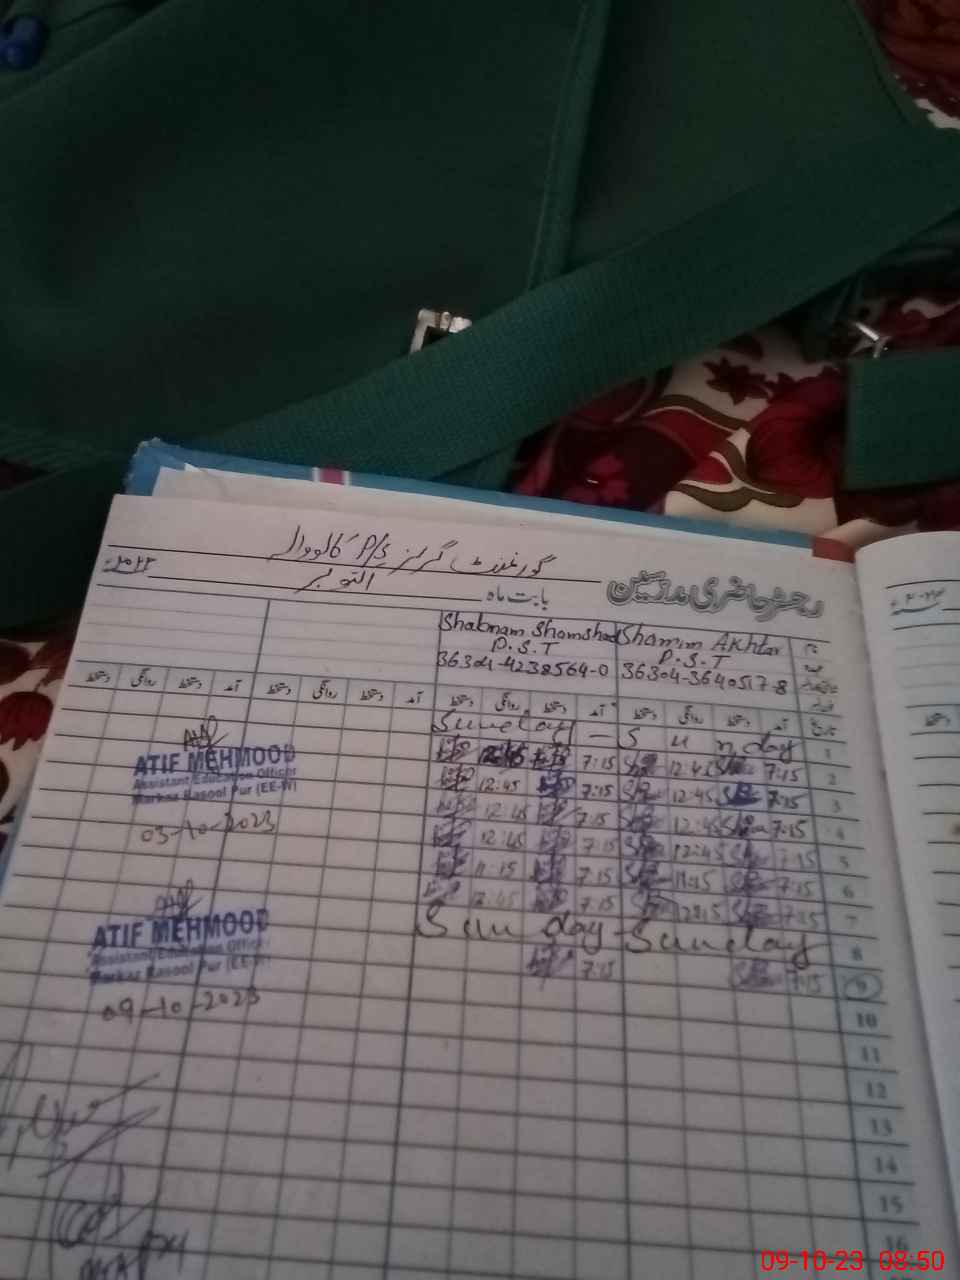 گورنمنٹ گرلز P/S کالووالہ
رجسٹر حاضری مدرسین
بابت ماہ اکتوبر ۲۰۲۳ء
Shabnam Shamshad Shamim Akhtar
P.S.T P.S.T
36304-4238564-0 36304-3640517-8
دستخط روانگی دستخط آمد دستخط روانگی دستخط آمد دستخط روانگی دستخط آمد دستخط روانگی دستخط آمد تاریخ
Sunday - Sunday 1
12:45 7:15 12:45 7:15 2
12:45 7:15 12:45 7:15 3
12:45 7:15 12:45 7:15 4
12:45 7:15 12:45 7:15 5
11:15 7:15 11:15 7:15 6
12:45 7:15 7:15 7
Sunday - Sunday 8
7:15 7:15 9
10
11
12
13
14
15
16
ATIF MEHMOOD
Assistant Education Officer
Markaz Rasool Pur (EE-W)
03-10-2023
ATIF MEHMOOD
Assistant Education Officer
Markaz Rasool Pur (EE-W)
09-10-2023
09-10-23 08:50